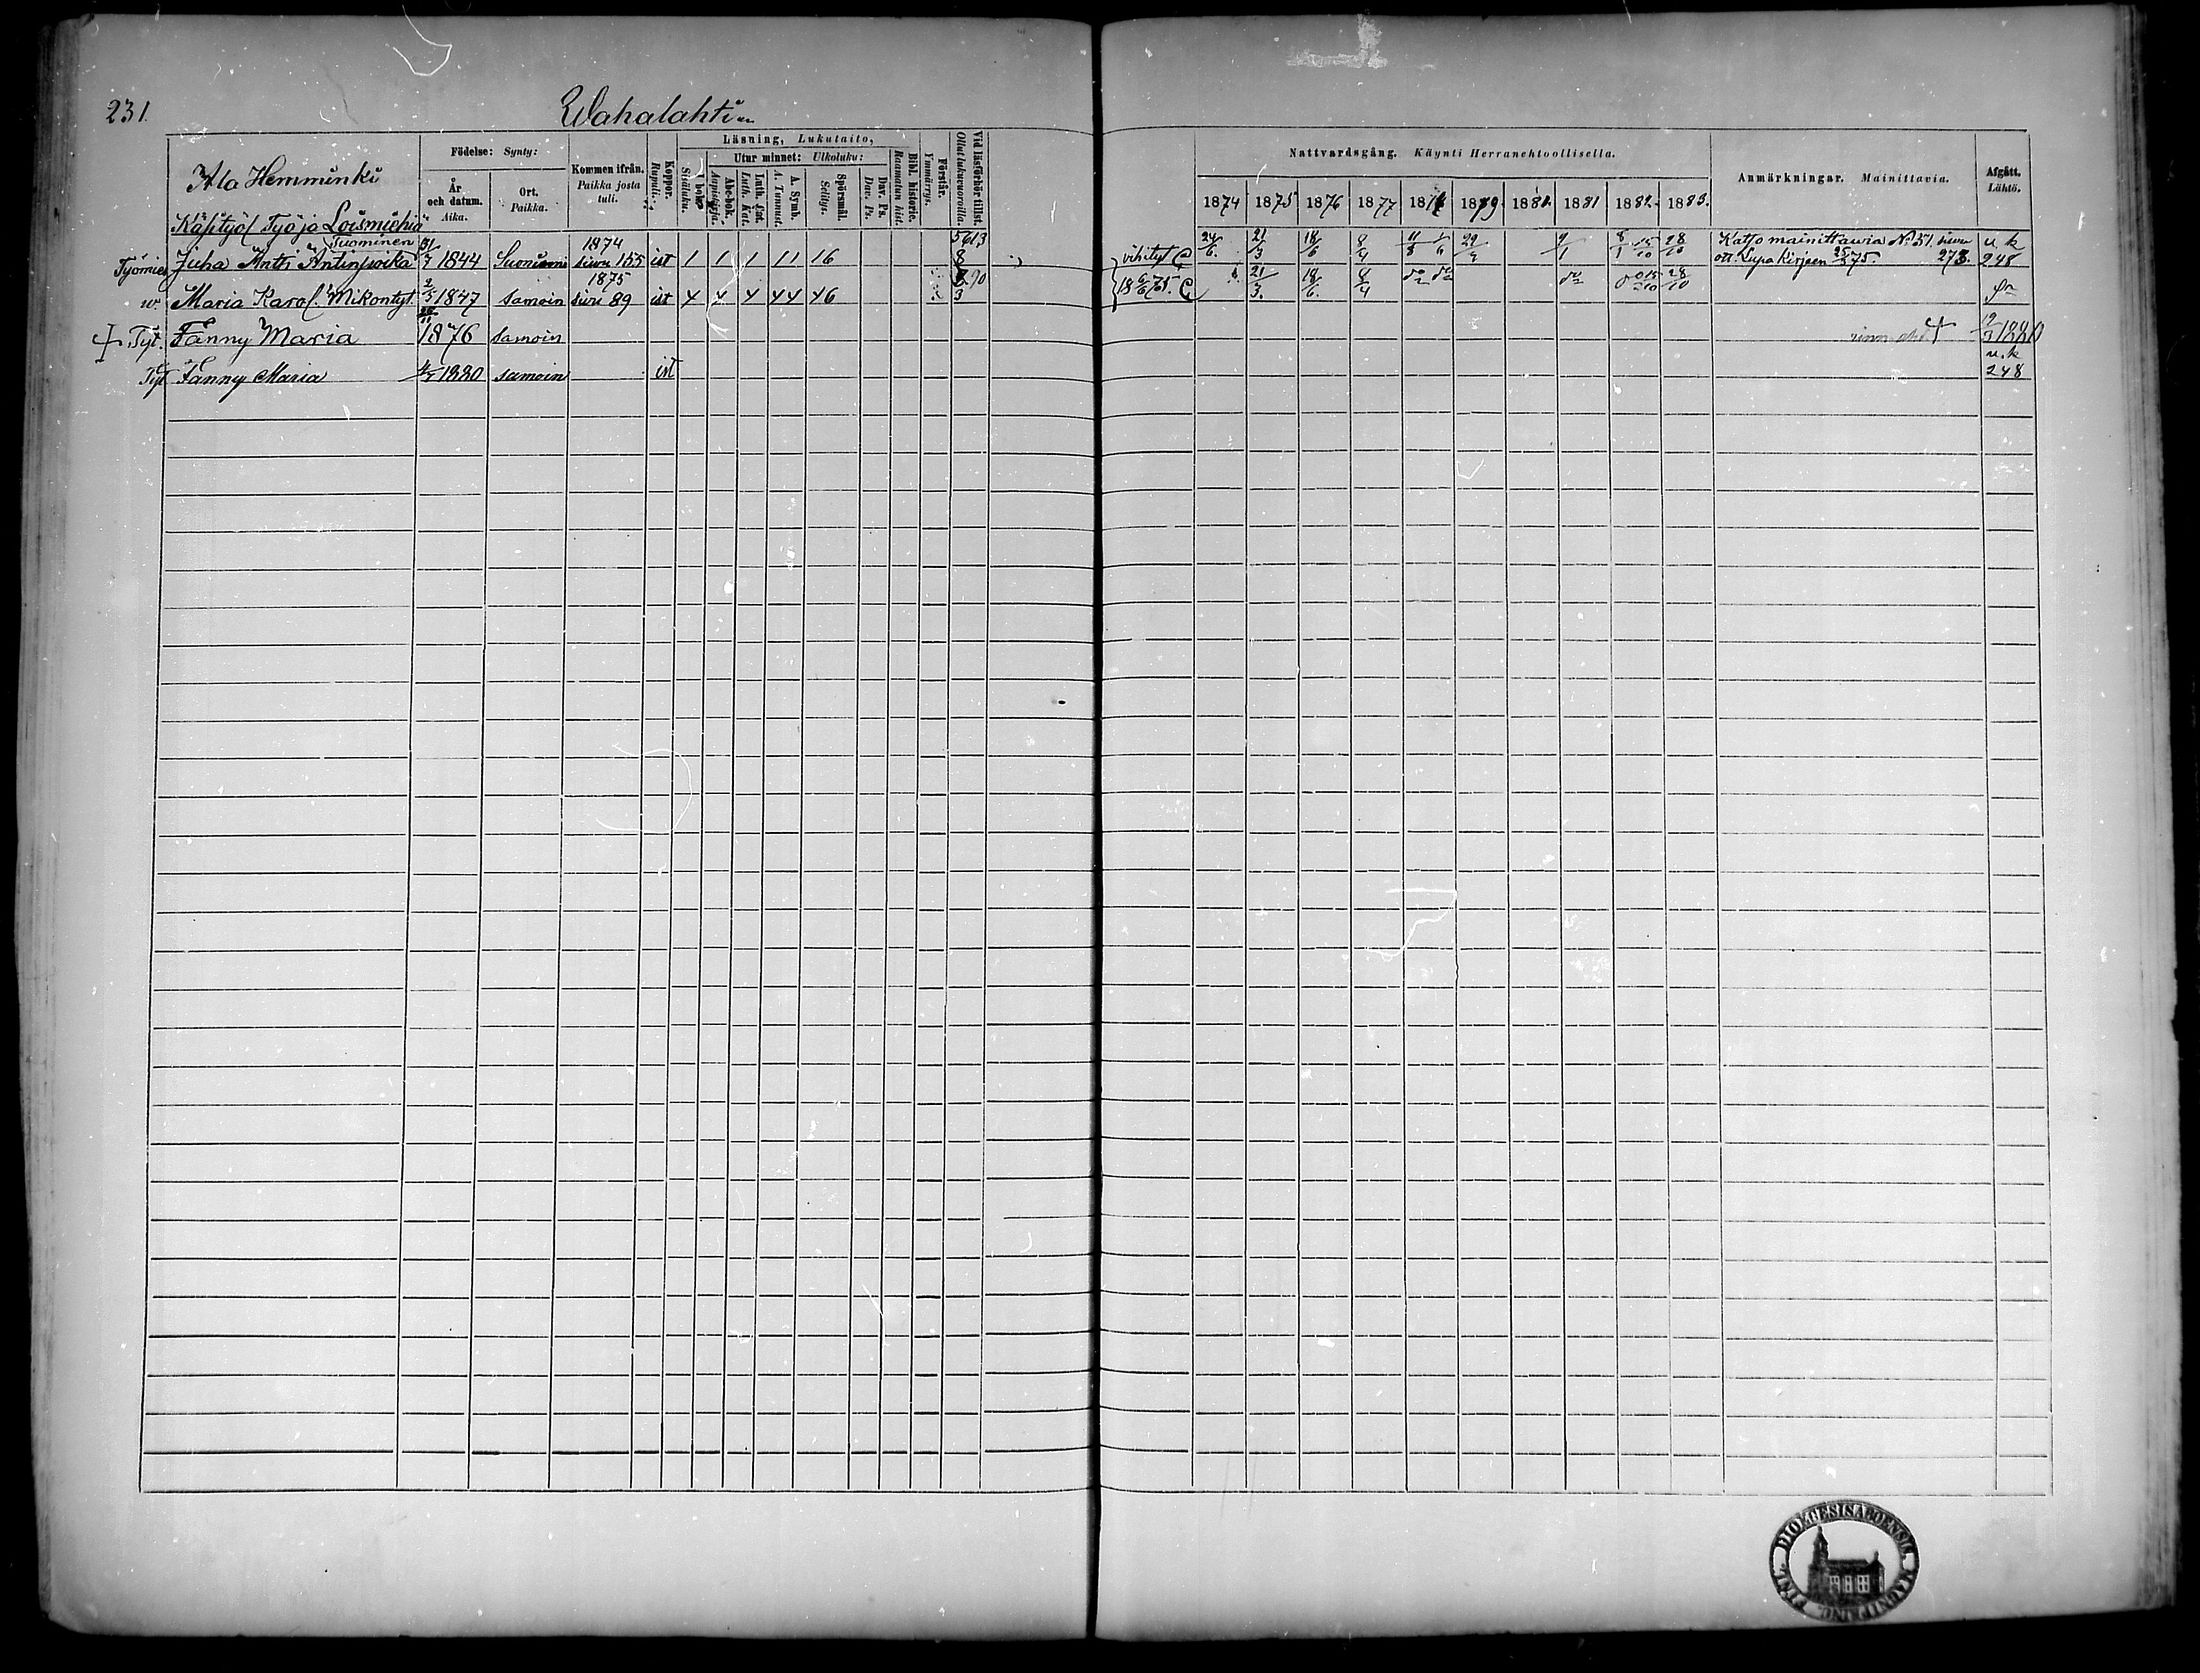 231.
Wahalahti
Ala Hemminki
Käsityöl. Työ ja Loismiehiä
Födelse: Synty:
År och datum. Aika.
Ort. Paikka.
Kommen ifrån. Paikka josta tuli.
Koppor. Rupuli.
Läsning, Lukutaito,
I bok. Sisäluku.
Utur minnet: Ulkoluku:
Abc-bok. Aapiskirja.
Luth. Cat. Luth. Kat.
A. Symb. A. Tunnust.
Spörsmål. Selitys.
Dav. Ps. Dav. Ps.
Bibl. historie. Raamatun hist.
Förstår. Ymmärrys.
Vid läsförhör tillst. Ollut lukuvuoroilla.
Nattvardsgång. Käynti Herranehtoollisella.
1874 1875 1876 1877 1879 1881 1882 1883.
Anmärkningar. Mainittavia.
Afgått. Lähtö.
Suominen
Työmies Juha Antti Antinpoika 31/7 1844 Suoniemi 1874 sivu 155 ist 1 1 1 11 16 5613 8
vihityt C 24/6. 21/3 18/6 8/4 11/8 29/9 9/1 8/1 15/10 28/10
Katso mainittawia No 51 sivu 273.
ott. Lupa Kirjaen 25/5 75
u. k 248
w. Maria Karol. Mikontyt. 2/5 1847 samoin 1875 sivu 89 ist 4 4 4 44 46 90 3
18 6/6 75. C 21/3. 18/6. 8/4 15/10 28/10
Tyt. Fanny Maria 1876 samoin
12/3 1880
Tyt Fanny Maria 1880 samoin ist
u. k 248
FINL. DIOECESIS ABOENSIS MAGNI PRINC.